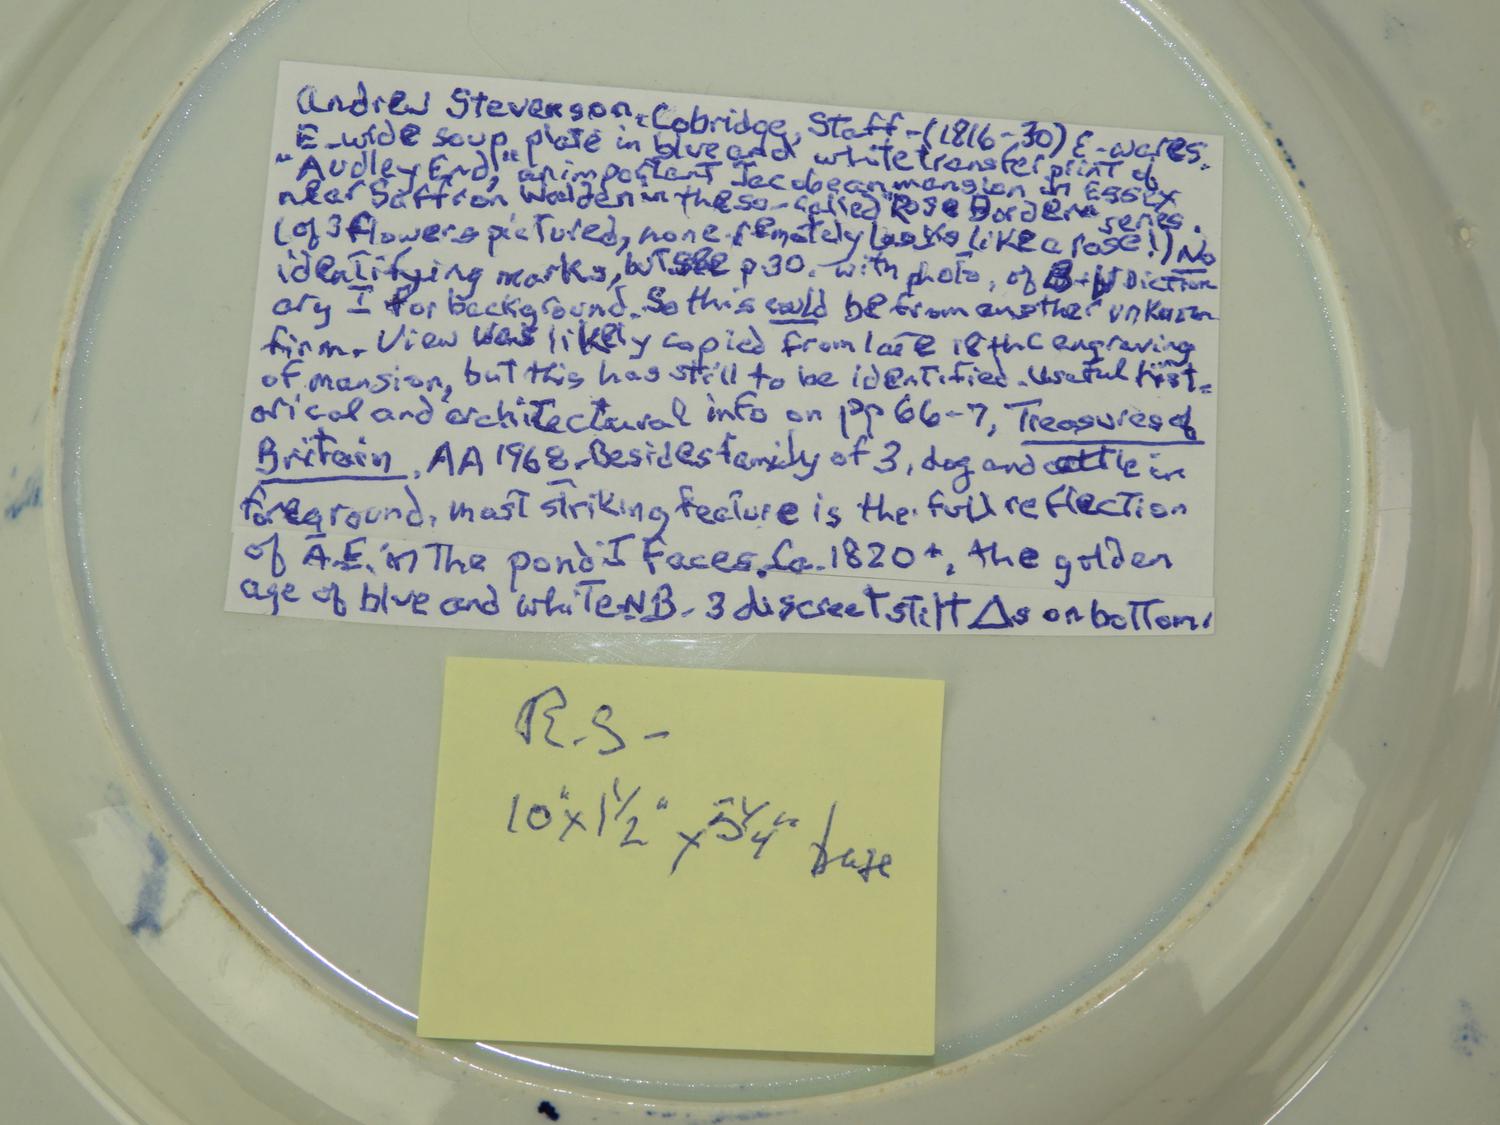 Andrew Stevenson, Cobridge, Staff-(1816-30) E-wares.
E-wide soup plate in blue and white transfer print of
"Audley End," an important Jacobean mansion in Essex
near Saffron Walden in the so-called "Rose Border" series.
(of 3 flowers pictured, none remotely looks like a rose!) No
identifying marks, but see p 30. with photo, of B+W Diction
ary I for background. So this could be from another unknown
firm. View was likely copied from late 18thC engraving
of mansion, but this has still to be identified. Useful hist-
orical and architectural info on pp 66-7, Treasures of
Britain, AA 1968. Besides family of 3, dog and cattle in
foreground, most striking feature is the full reflection
of A.E. in the pond it faces. Ca. 1820+, the golden
age of blue and white. NB- 3 discreet stilt Δs on bottom.
R.S-
10"x1½" x5¼" base